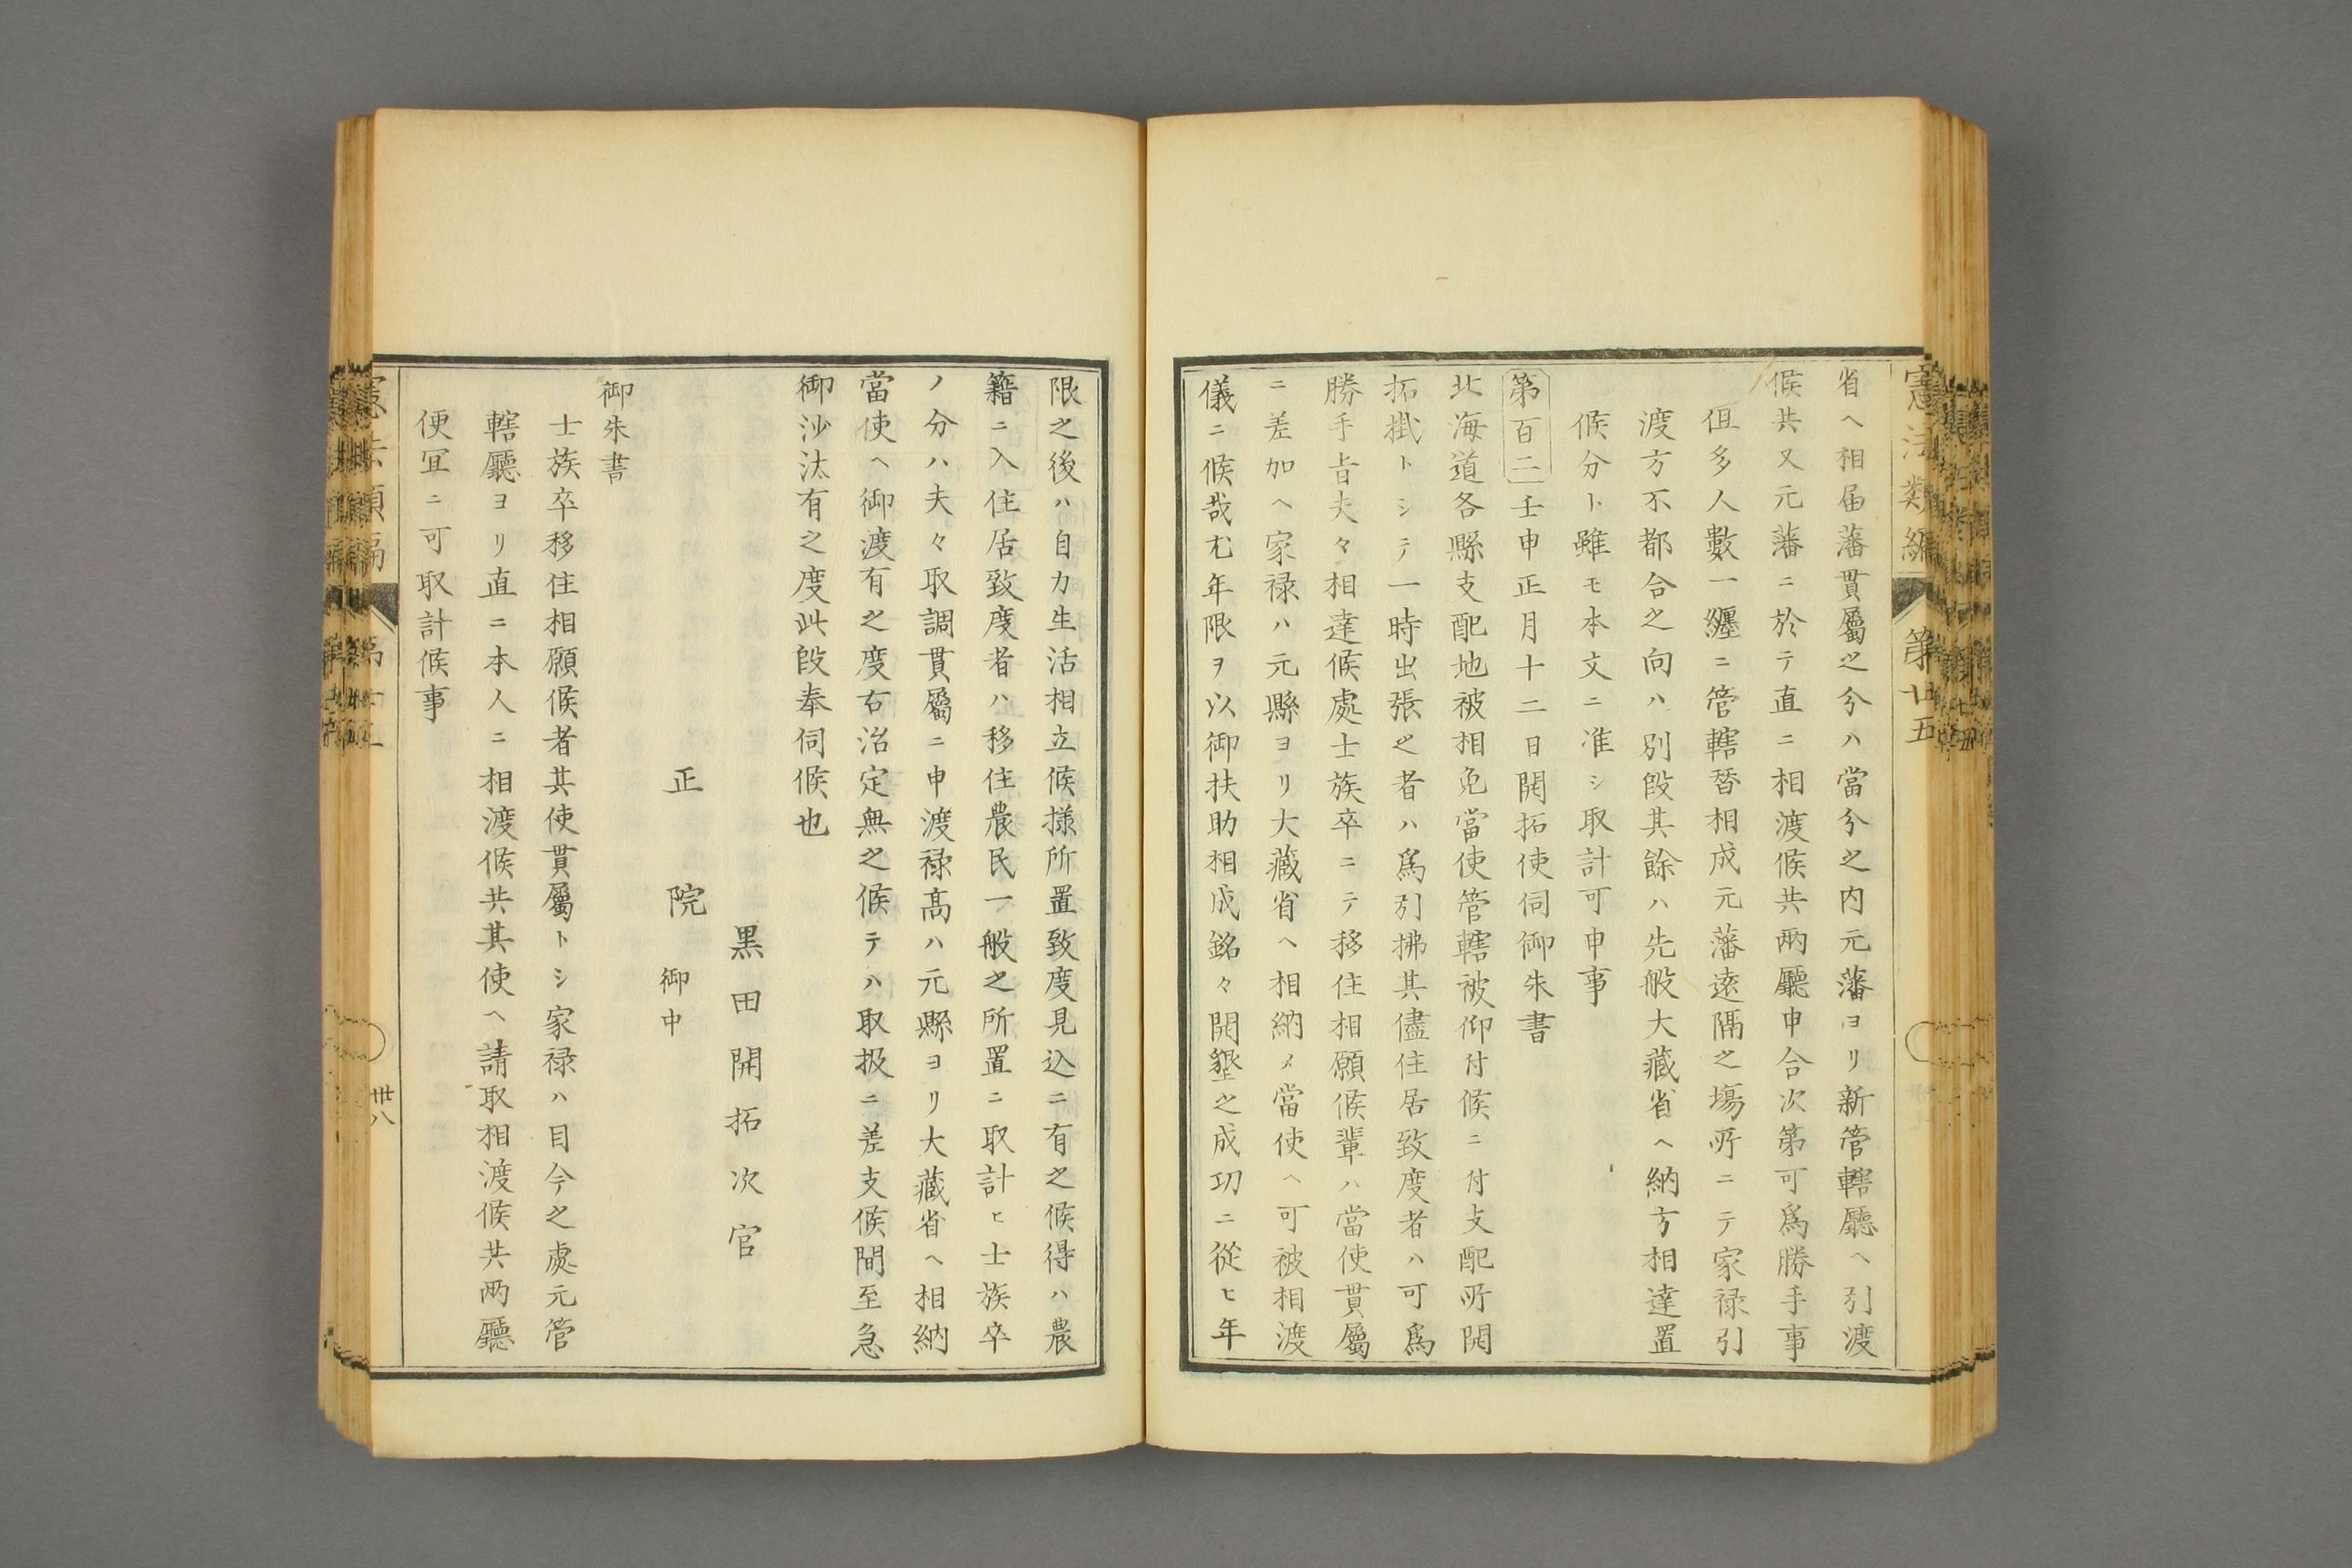 憲法類編
第廿五
省ヘ相届藩貫屬之分ハ當分之内元藩ヨリ新管轄廳ヘ引渡
候共又元藩ニ於テ直ニ相渡候共兩廳申合次第可爲勝手事
但多人數一纏ニ管轄替相成元藩遠隔之塲所ニテ家禄引
渡方不都合之向ハ別段其餘ハ先般大藏省ヘ納方相達置
候分ト雖モ本文ニ准シ取計可申事
第百二壬申正月十二日開拓使伺御朱書
北海道各縣支配地被相免當使管轄被仰付候ニ付支配所開
拓掛トシテ一時出張之者ハ爲引拂其儘住居致度者ハ可爲
勝手旨夫々相達候處士族卒ニテ移住相願候輩ハ當使貫屬
ニ差加ヘ家禄ハ元縣ヨリ大藏省ヘ相納メ當使ヘ可被相渡
儀ニ候哉尤年限ヲ以御扶助相成銘々開墾之成功ニ從ヒ年
限之後ハ自力生活相立候様所置致度見込ニ有之候得ハ農
籍ニ入住居致度者ハ移住農民一般之所置ニ取計ヒ士族卒
ノ分ハ夫々取調貫屬ニ申渡禄高ハ元縣ヨリ大藏省ヘ相納
當使ヘ御渡有之度右治定無之候テハ取扱ニ差支候間至急
御沙汰有之度此段奉伺候也
黒田開拓次官
正院御中
御朱書
士族卒移住相願候者其使貫屬トシ家禄ハ目今之處元管
轄廳ヨリ直ニ本人ニ相渡候共其使ヘ請取相渡候共兩廳
便宜ニ可取計候事
卅八